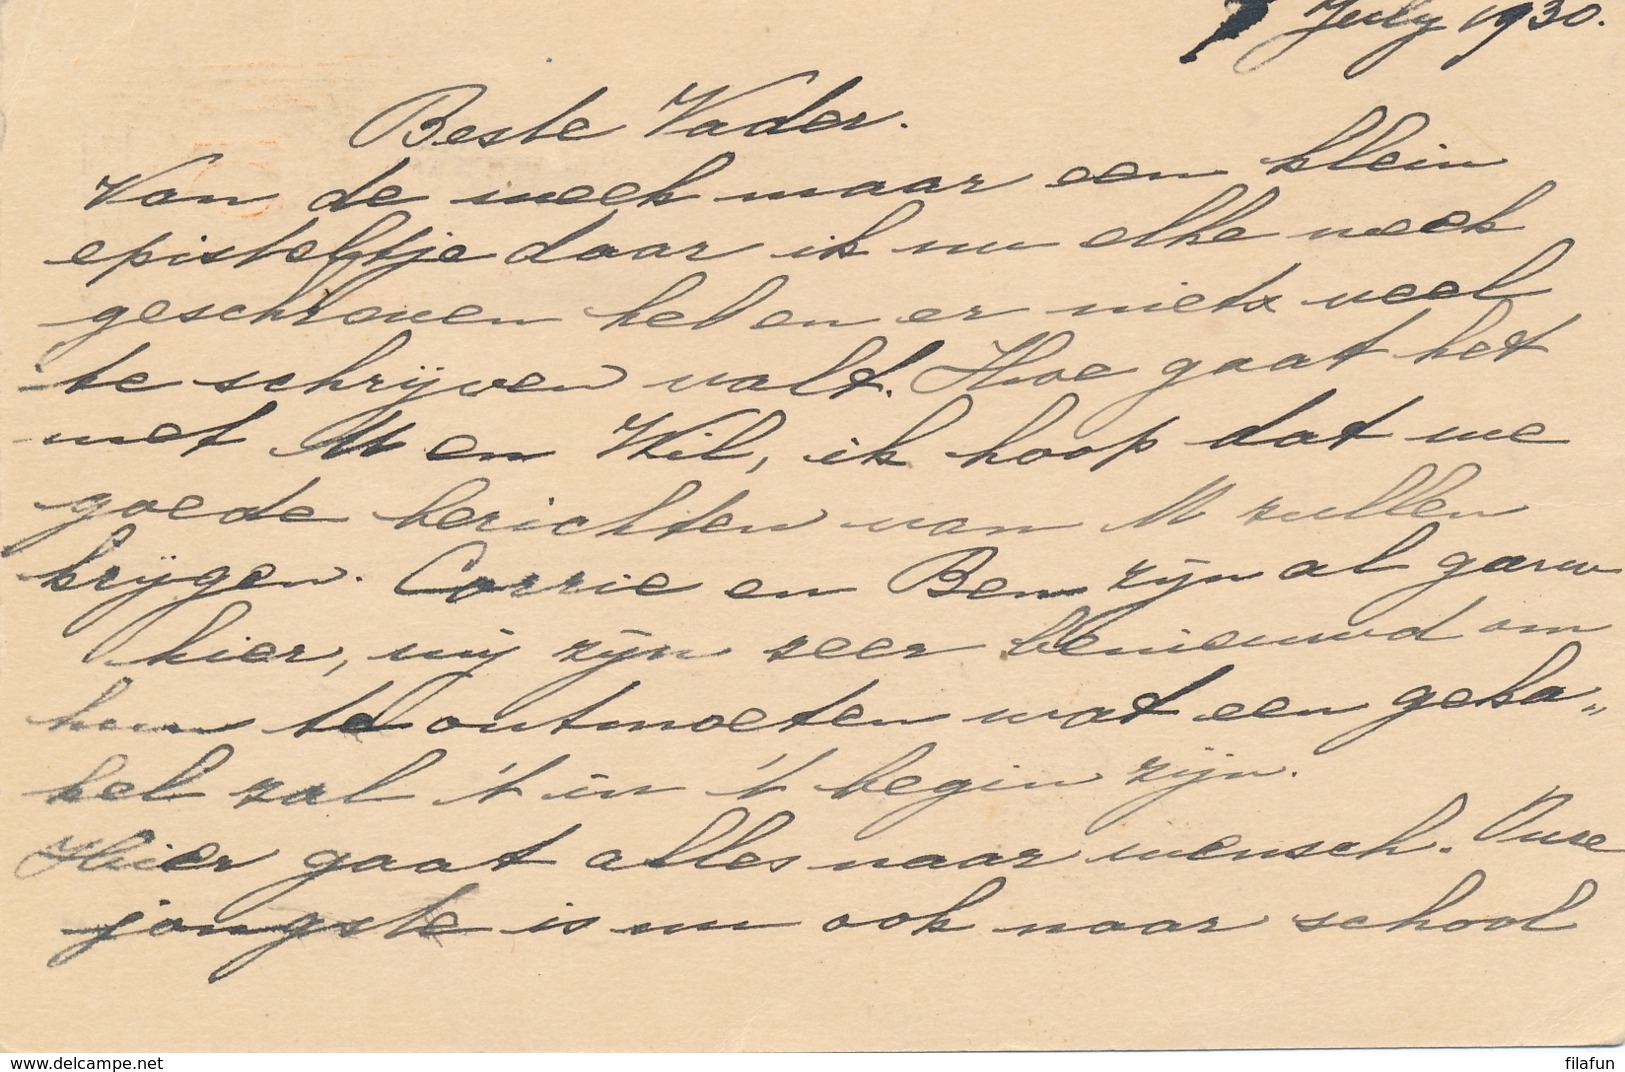 July 1930.
Beste Vader.
Van de week maar een klein
episteltje daar ik nu elke week
geschreven heb en er niets veel
te schrijven valt. Hoe gaat het
met M en Wil, ik hoop dat we
goede berichten van M zullen
krijgen. Corrie en Ben zijn al gauw
hier, wij zijn zeer benieuwd om
hun te ontmoeten wat een geka„
kel zal 't in 't begin zijn.
Hier gaat alles naar wensch. Onze
jongste is nu ook naar school
www.delcampe.net
filafun